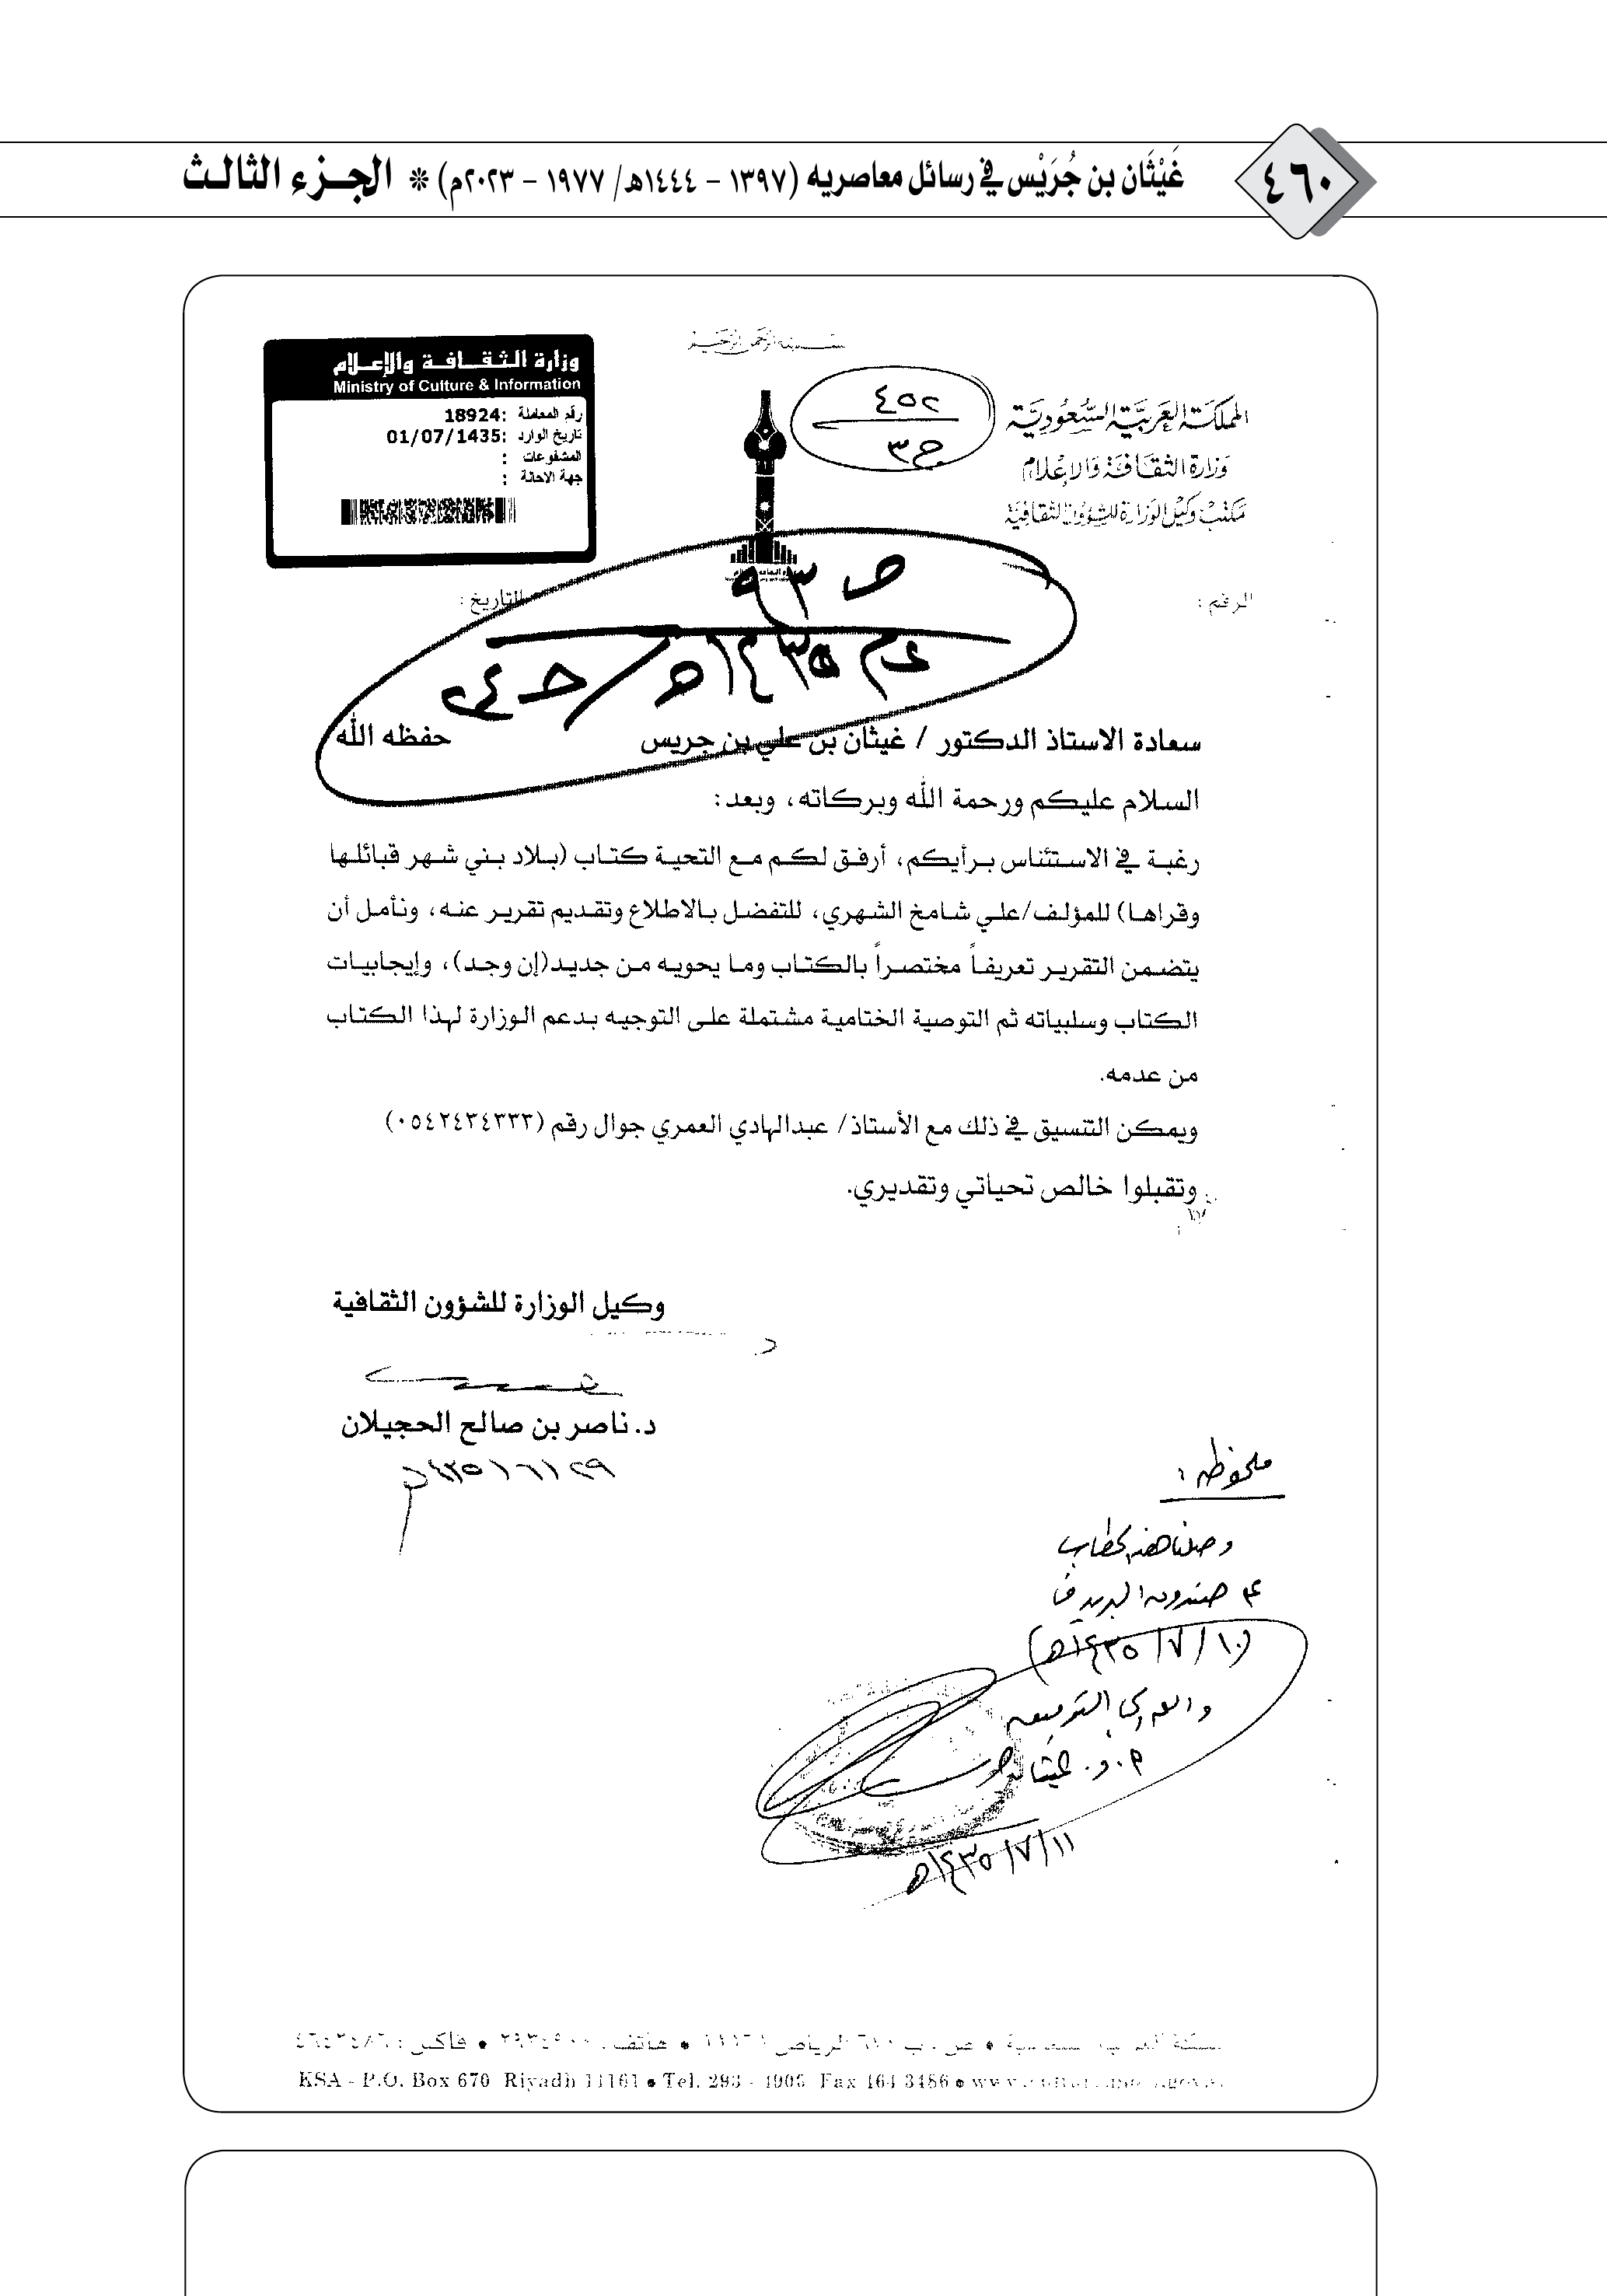 ٤٦٠
غَيْثَان بن جُرَيْس في رسائل معاصريه (١٣٩٧ - ١٤٤٤هـ/ ١٩٧٧ - ٢٠٢٣م) * الجزء الثالث
المملكة العربية السعودية
وزارة الثقافة والإعلام
مكتب وكيل الوزارة للشؤون الثقافية
٤٥٢
ج٣
وزارة الثقافة والإعلام
Ministry of Culture & Information
رقم المعاملة :18924
تاريخ الوارد :01/07/1435
المشفوعات :
جهة الاحالة :
الرقم :
التاريخ :
ص ٣٩
عام ١٤٣٥هـ / ج٤٢
سعادة الاستاذ الدكتور / غيثان بن علي بن جريس حفظه الله
السلام عليكم ورحمة الله وبركاته، وبعد:
رغبة في الاستئناس برأيكم، أرفق لكم مع التحية كتاب (بلاد بني شهر قبائلها
وقراها) للمؤلف/علي شامخ الشهري، للتفضل بالاطلاع وتقديم تقرير عنه، ونأمل أن
يتضمن التقرير تعريفاً مختصراً بالكتاب وما يحويه من جديد(إن وجد)، وإيجابيات
الكتاب وسلبياته ثم التوصية الختامية مشتملة على التوجيه بدعم الوزارة لهذا الكتاب
من عدمه.
ويمكن التنسيق في ذلك مع الأستاذ/ عبدالهادي العمري جوال رقم (٠٥٤٢٤٣٤٣٣٣)
وتقبلوا خالص تحياتي وتقديري.
وكيل الوزارة للشؤون الثقافية
د. ناصر بن صالح الحجيلان
ملحوظه :
وصلنا هذا الخطاب
صندوق البريد في
(١٠/٧/١٤٣٥هـ)
والله ولي التوفيق
أ.د. غيثان جريس
١١/٧/١٤٣٥هـ
KSA - P.O. Box 670 Riyadh 11161 • Tel. Fax 464 3486 •